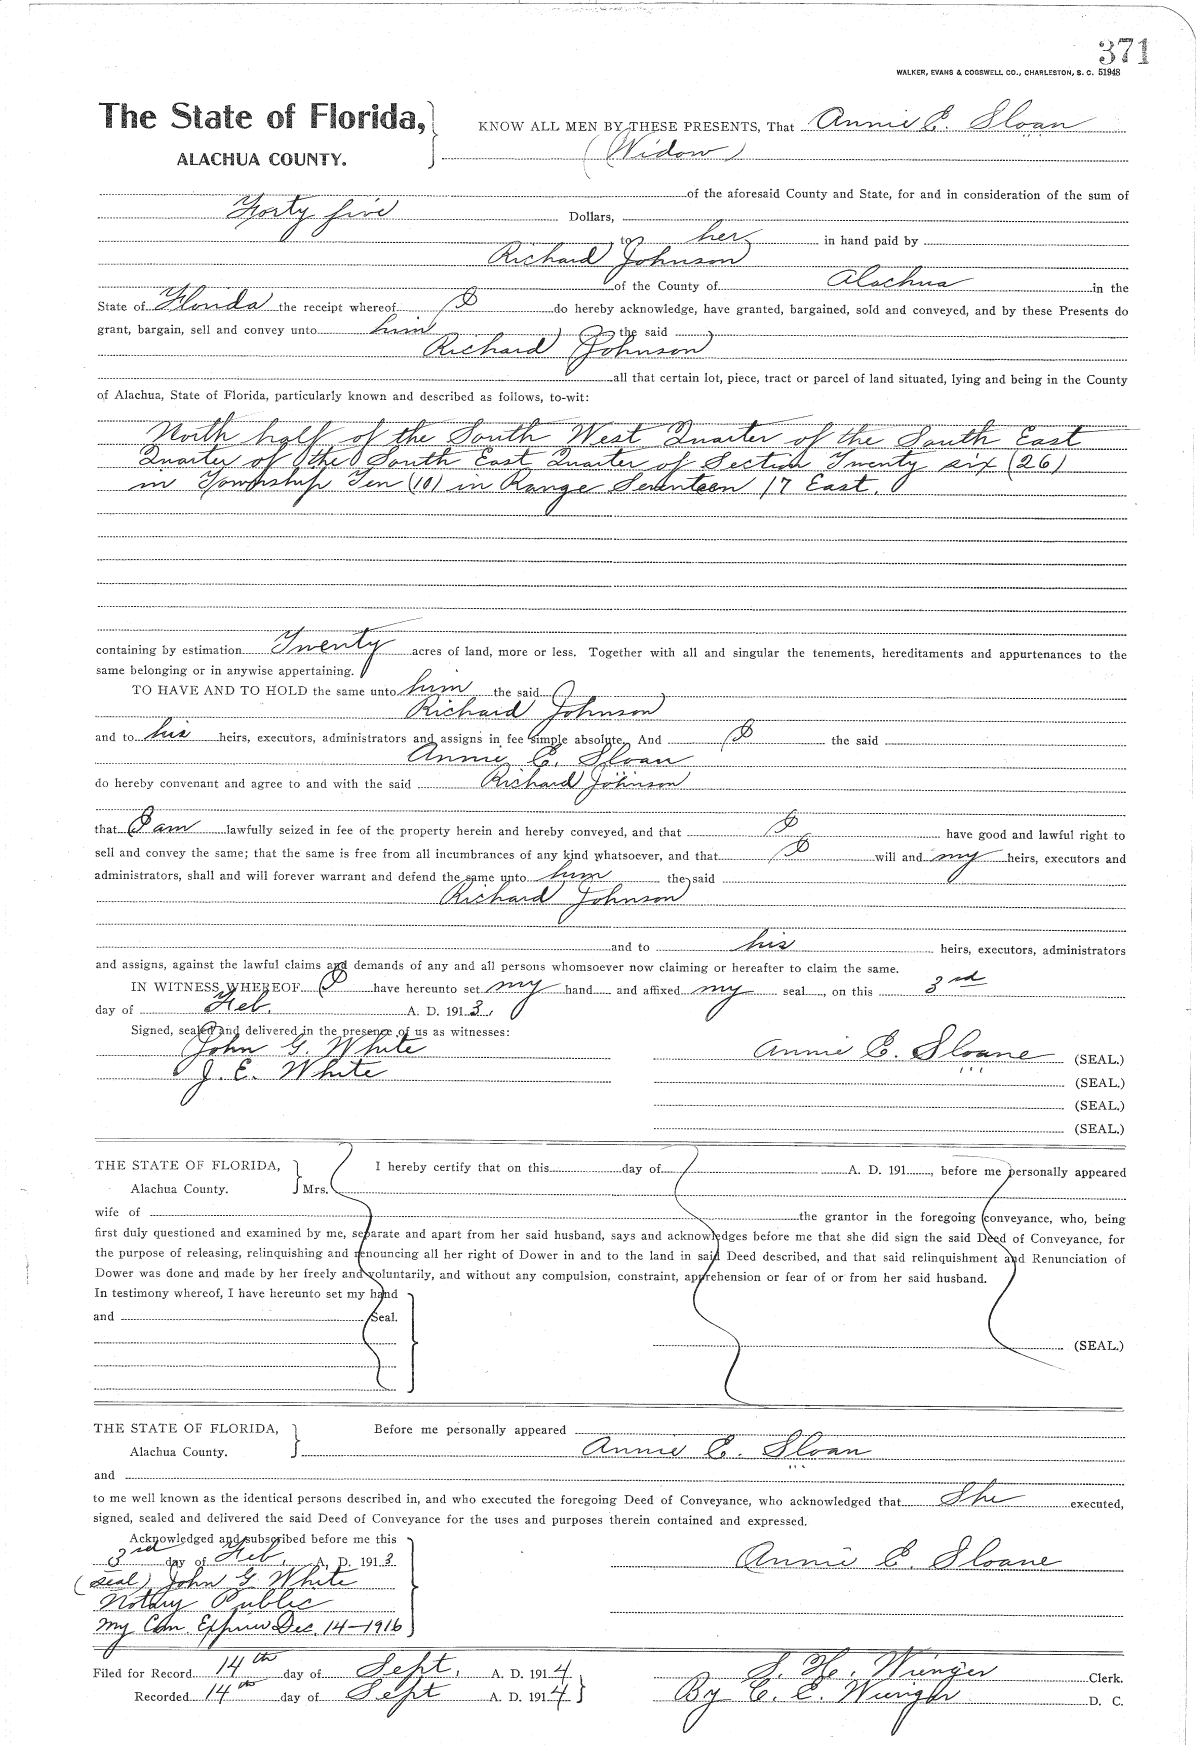 371
WALKER, EVANS & COGSWELL CO., CHARLESTON, S. C. 51948
The State of Florida,
ALACHUA COUNTY.
KNOW ALL MEN BY THESE PRESENTS, That Annie E. Sloan
(Widow)
of the aforesaid County and State, for and in consideration of the sum of
Forty five Dollars,
to her in hand paid by
Richard Johnson
of the County of Alachua in the
State of Florida the receipt whereof I do hereby acknowledge, have granted, bargained, sold and conveyed, and by these Presents do
grant, bargain, sell and convey unto him the said
Richard Johnson
all that certain lot, piece, tract or parcel of land situated, lying and being in the County
of Alachua, State of Florida, particularly known and described as follows, to-wit:
North half of the South West Quarter of the South East
Quarter of the South East Quarter of Section Twenty six (26)
in Township Ten (10) in Range Seventeen 17 East.
containing by estimation Twenty acres of land, more or less. Together with all and singular the tenements, hereditaments and appurtenances to the
same belonging or in anywise appertaining.
TO HAVE AND TO HOLD the same unto him the said
Richard Johnson
and to his heirs, executors, administrators and assigns in fee simple absolute. And I the said
Annie E. Sloan
do hereby convenant and agree to and with the said Richard Johnson
that I am lawfully seized in fee of the property herein and hereby conveyed, and that I have good and lawful right to
sell and convey the same; that the same is free from all incumbrances of any kind whatsoever, and that I will and my heirs, executors and
administrators, shall and will forever warrant and defend the same unto him the said
Richard Johnson
and to his heirs, executors, administrators
and assigns, against the lawful claims and demands of any and all persons whomsoever now claiming or hereafter to claim the same.
IN WITNESS WHEREOF I have hereunto set my hand and affixed my seal, on this 3rd
day of Feb. A. D. 1913.
Signed, sealed and delivered in the presence of us as witnesses:
John G. White
Annie E. Sloane (SEAL.)
J. E. White
(SEAL.)
(SEAL.)
(SEAL.)
THE STATE OF FLORIDA,
Alachua County.
I hereby certify that on this day of A. D. 191, before me personally appeared
Mrs.
wife of the grantor in the foregoing conveyance, who, being
first duly questioned and examined by me, separate and apart from her said husband, says and acknowledges before me that she did sign the said Deed of Conveyance, for
the purpose of releasing, relinquishing and renouncing all her right of Dower in and to the land in said Deed described, and that said relinquishment and Renunciation of
Dower was done and made by her freely and voluntarily, and without any compulsion, constraint, apprehension or fear of or from her said husband.
In testimony whereof, I have hereunto set my hand
and Seal.
(SEAL.)
THE STATE OF FLORIDA,
Alachua County.
Before me personally appeared
Annie E. Sloan
and
to me well known as the identical persons described in, and who executed the foregoing Deed of Conveyance, who acknowledged that She executed,
signed, sealed and delivered the said Deed of Conveyance for the uses and purposes therein contained and expressed.
Acknowledged and subscribed before me this
3rd day of Feb. A. D. 1913
Annie E. Sloane
(seal) John G White
Notary Public
My Com. Expires Dec. 14-1916
Filed for Record 14th day of Sept. A. D. 1914
S. H. Wienger Clerk.
Recorded 14th day of Sept A. D. 1914
By E. E. Wienger D. C.